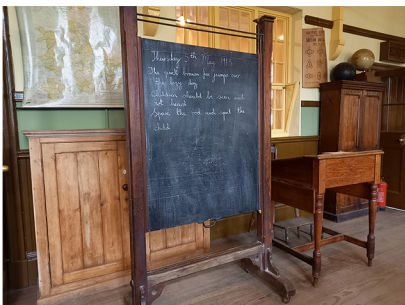 Thursday 7th May 1915
The quick brown fox jumps over
the lazy dog
Children should be seen and
not heard
Spare the rod and spoil the
child